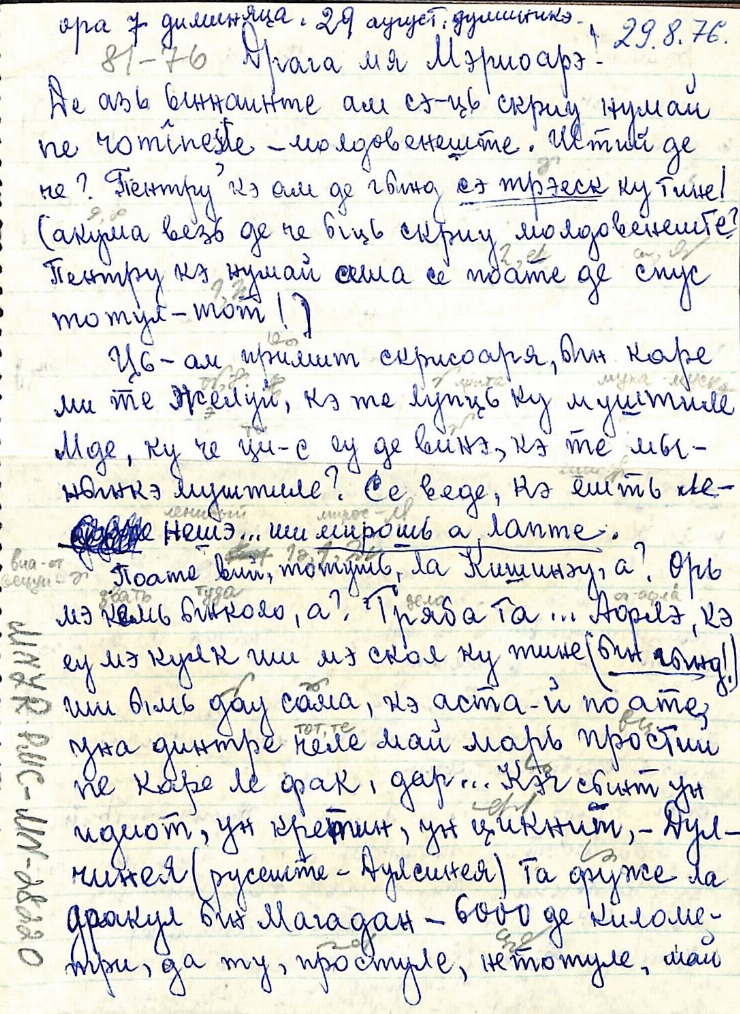 ора 7 диминяца. 29 аугуст, думиникэ.
29.8.76.
81-76 Драга мя Мэриоарэ!
Де азь ынаинте ам сэ-ць скриу нумай
пе молдовенеште. Штий де
че? Пентру кэ ам де гынд сэ трэеск ку тине!
(акума везь де че ыць скриу молдовенеште?
Пентру кэ нумай аша се поате де спус
тотул-тот!)
Ць-ам примит скрисоаря, ын каре
ми те жэлуй, кэ те лупць ку муштиле
Мде, ку че ци-с еу де винэ, кэ те мы-
нынкэ муштиле? Се веде, кэ ешть ле-
нешэ... ши мирошь а лапте.
Поате вий, тотушь, ла Кишинэу, а? Орь
мэ кемь ынколо, а? Тряба та... Афлэ, кэ
еу мэ кулк ши мэ скол ку тине (ын гынд!)
ши ымь дау сама, кэ аста-й поате,
уна динтре челе май марь простий
пе каре ле фак, дар... Кэч сынт ун
идиот, ун кретин, ун цикнит, - Дул-
чинея (русеште - Дулсинея) та фуже ла
дракул ын Магадан - 6000 де киломе-
три, да ту, простуле, нетотуле, май
MNLR РМС-МП-28220